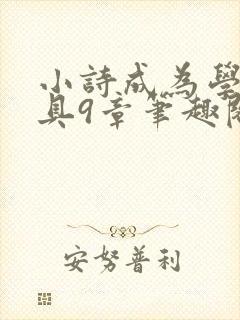 小詩成為學
具9章筆趣閱
安努普利